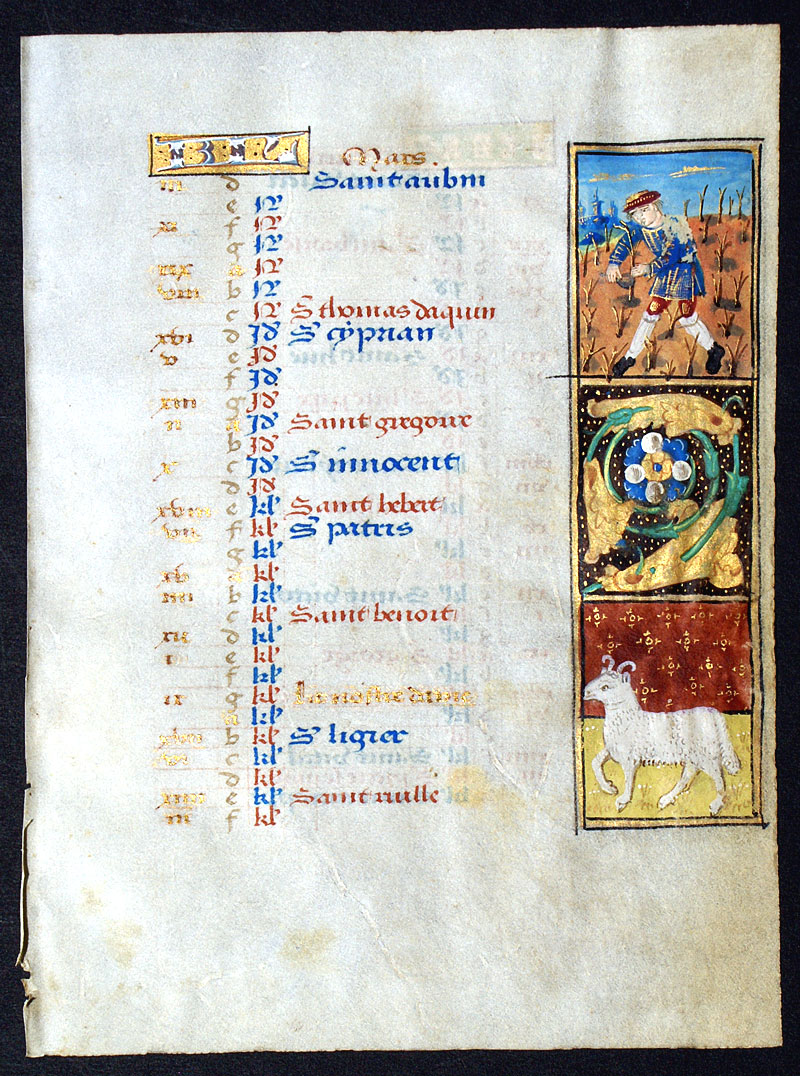 Mars.
iii d Saint aubin
e N
xi f N
g N
xix a N
viii b N
c N S thomas daquin
xvi d Id S cyprian
v e Id
f Id
xiii g Id
ii a Id Saint gregoire
b Id
x c Id S innocent
d Id
xviii e kl Saint hebert
vii f kl S patris
g kl
xv a kl
iiii b kl
c kl Saint benoit
xii d kl
i e kl
f kl
ix g kl La nostre dame
a kl
xvii b kl S ligier
vi c kl
d kl
xiiii e kl Saint riulle
iii f kl